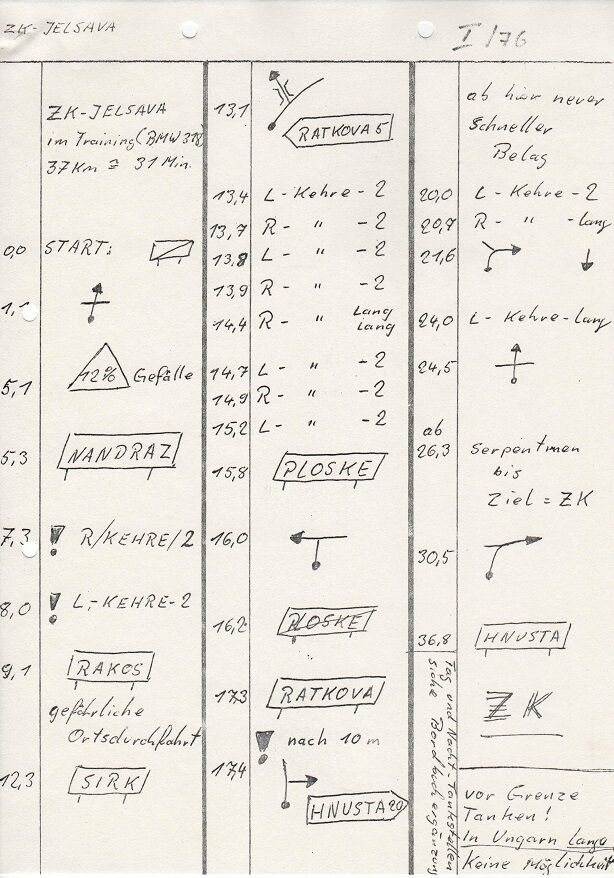 ZK-JELSAVA
I/76
ZK-JELSAVA
im Training (BMW 318)
37 Km ≙ 31 Min.
0,0 START:
1,1
5,1 12% Gefälle
5,3 NANDRAZ
7,3 ! R/KEHRE/2
8,0 ! L,-KEHRE-2
9,1 RAKOS
gefährliche
Ortsdurchfahrt
12,3 SIRK
13,1 RATKOVA 5
13,4 L-Kehre-2
13,7 R- " -2
13,8 L- " -2
13,9 R- " -2
14,4 R- " Lang
lang
14,7 L- " -2
14,9 R- " -2
15,2 L- " -2
15,8 PLOSKE
16,0
16,2 PLOSKE
17,3 RATKOVA
! nach 10 m
17,4 HNUSTA 20
ab hier neuer
Schneller
Belag
20,0 L-Kehre-2
20,7 R- " -lang
21,6
24,0 L-Kehre-lang
24,5
ab
26,3 Serpentinen
bis
Ziel = ZK
30,5
36,8 HNUSTA
ZK
Tag und Nacht-Tankstellen
siehe Bordbuchergänzung
vor Grenze
Tanken!
In Ungarn Lange
Keine Möglichkeit